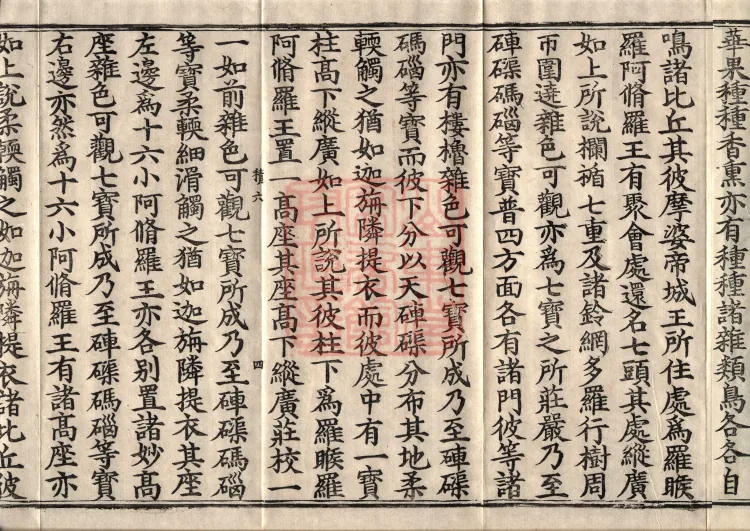 華果種種香熏亦有種種諸雜類鳥各各自
鳴諸比丘其彼摩婆帝城王所住處為羅睺
羅阿脩羅王有聚會處還名七頭其處縱廣
如上所說欄楯七重及諸鈴網多羅行樹周
帀圍遶雜色可觀亦為七寶之所莊嚴乃至
硨磲碼碯等寶普四方面各有諸門彼等諸
門亦有樓櫓雜色可觀七寶所成乃至硨磲
碼碯等寶而彼下分以天硨磲分布其地柔
輭觸之猶如迦旃隣提衣而彼處中有一寶
柱高下縱廣如上所說其彼柱下為羅睺羅
阿脩羅王置一高座其座高下縱廣莊校一
積六 四
一如前雜色可觀七寶所成乃至硨磲碼碯
等寶柔輭細滑觸之猶如迦旃隣提衣其座
左邊為十六小阿脩羅王亦各別置諸妙高
座雜色可觀七寶所成乃至硨磲碼碯等寶
右邊亦然為十六小阿脩羅王有諸高座亦
如上說柔輭觸之如迦旃隣提衣諸比丘彼